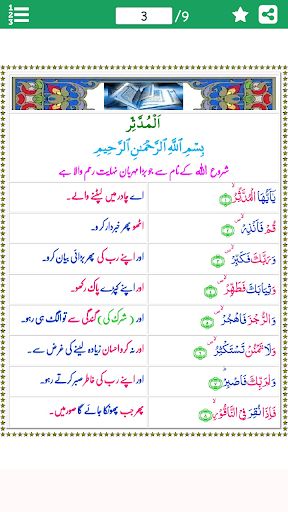 3 /9
اَلْمُدَّثِّر
بِسْمِ ٱللَّهِ ٱلرَّحْمَٰنِ ٱلرَّحِيمِ
شروع اللہ کے نام سے جو بڑا مہربان نہایت رحم والا ہے
يٰۤاَيُّهَا الْمُدَّثِّرُۙ ۱ اے چادر میں لپٹنے والے۔
قُمْ فَاَنْذِرْۙ ۲ اٹھو پھر خبردار کرو۔
وَرَبَّكَ فَكَبِّرْۙ ۳ اور اپنے رب کی پھر بڑائی بیان کرو۔
وَثِيَابَكَ فَطَهِّرْۙ ۴ اور اپنے کپڑے پاک رکھو۔
وَالرُّجْزَ فَاهْجُرْۙ ۵ اور ( شرک کی ) گندگی سے تو الگ ہی رہو۔
وَلَا تَمْنُنْ تَسْتَكْثِرُۙ ۶ اور نہ کرو احسان زیادہ لینے کی غرض سے۔
وَلِرَبِّكَ فَاصْبِرْؕ ۷ اور اپنے رب کی خاطر صبر کرتے رہو۔
فَاِذَا نُقِرَ فِى النَّاقُوْرِۙ ۸ پھر جب پھونکا جائے گا صور میں۔